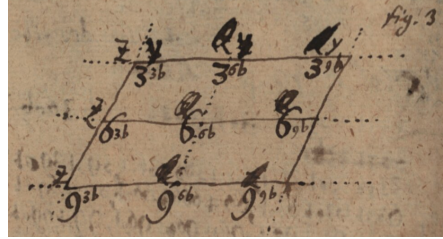 fig. 3
Z y y y
3 3b 3 6b 3 9b
Z
6 3b 6 6b 6 9b
Z
9 3b 9 6b 9 9b